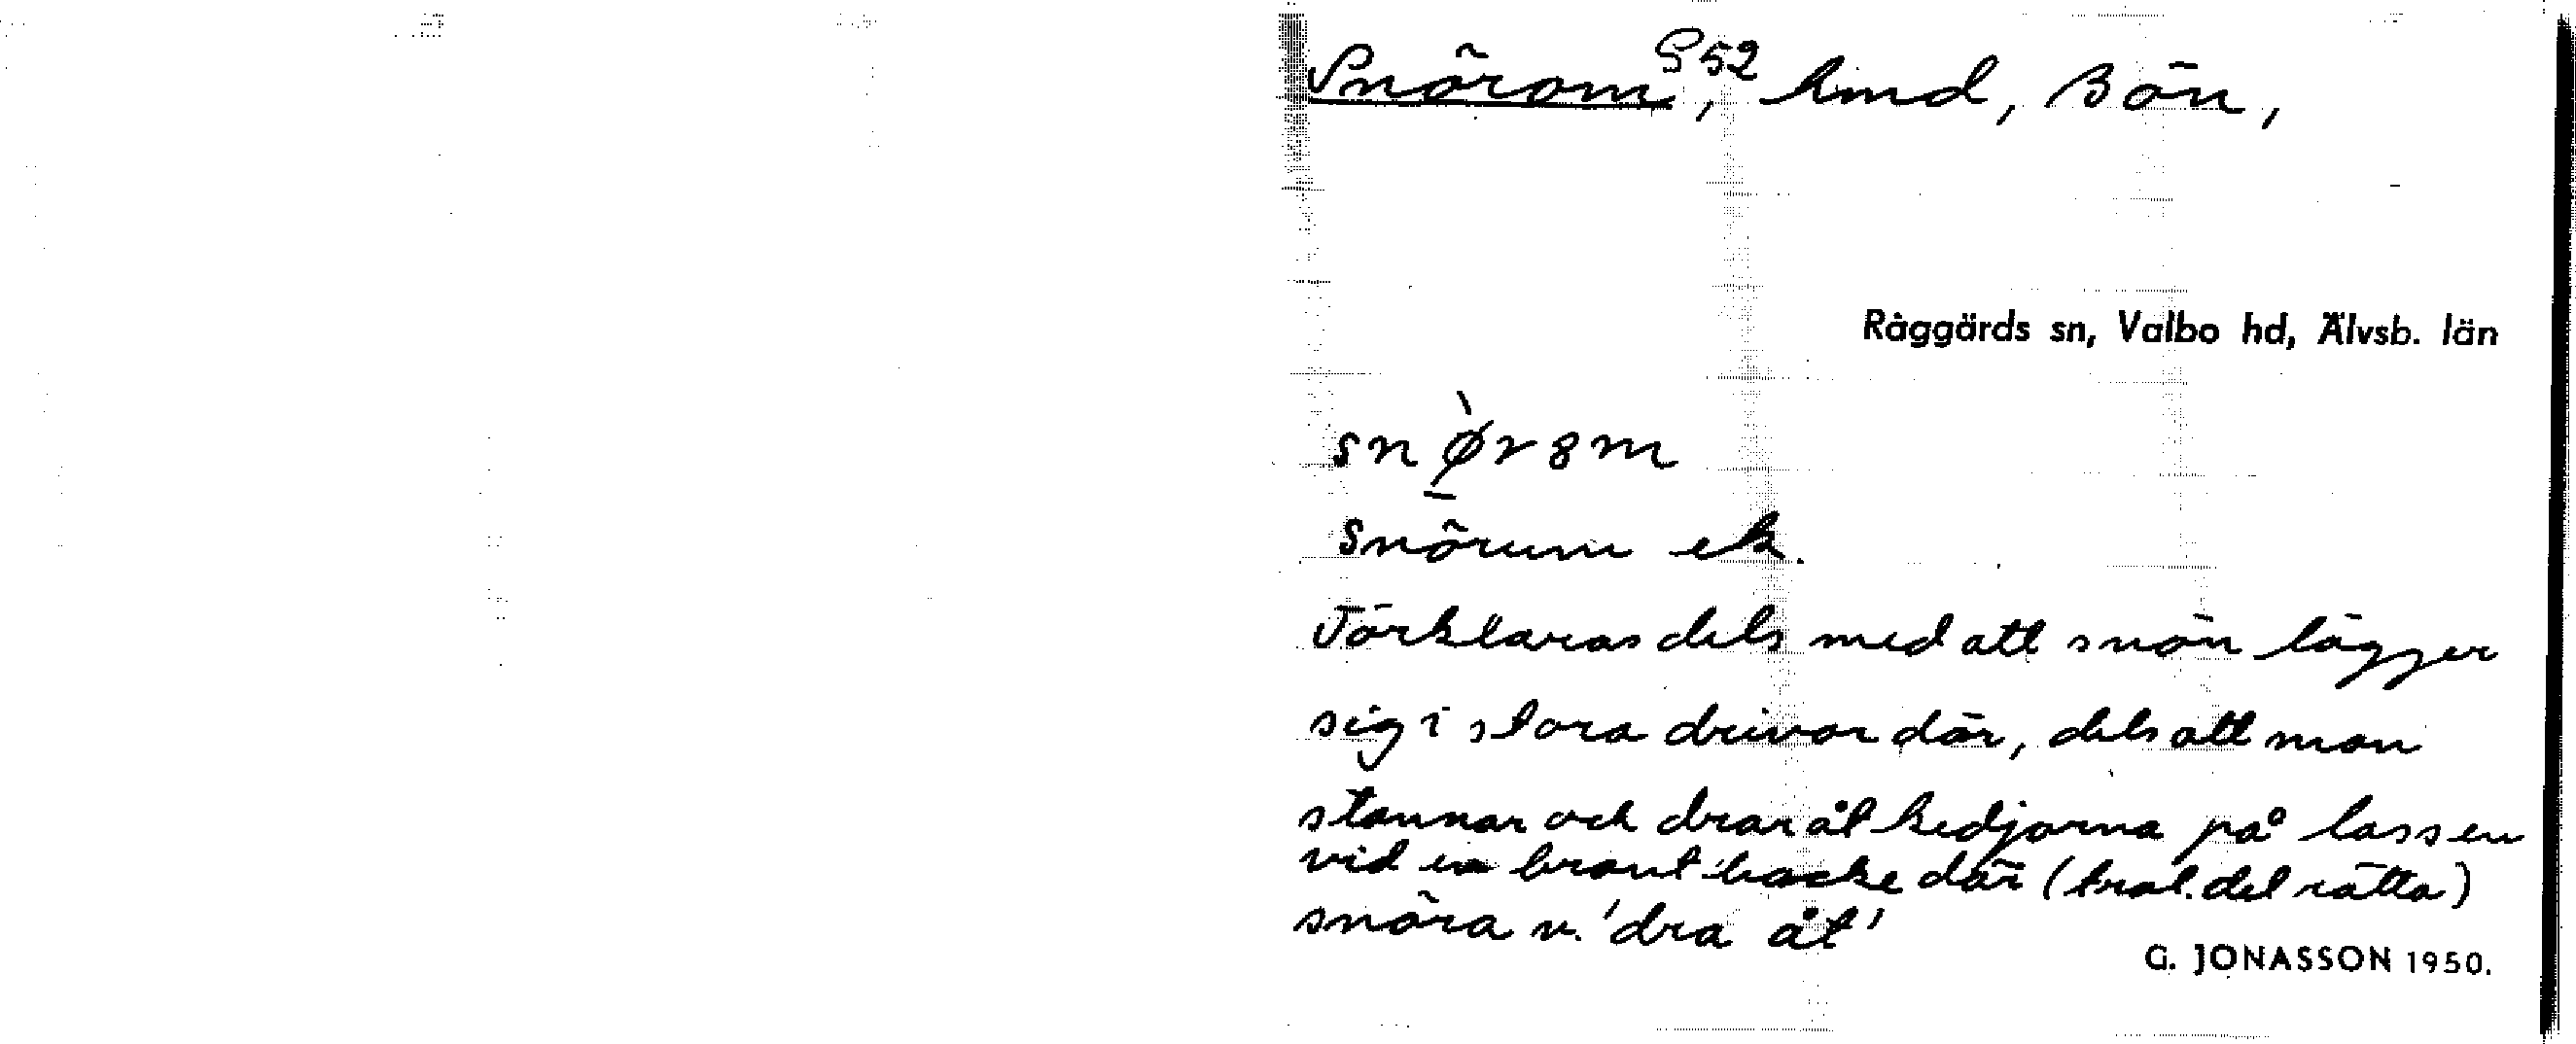 Snörom, S 52 hmd, Bön,
Råggärds sn, Valbo hd, Älvsb. län
snø̀r8m
Snörum ek.
Förklaras dels med att snön lägger
sig i stora drivor där, dels att man
stannar och drar åt kedjorna på lassen
vid en brant backe där (trol. det rätta)
snöra v. 'dra åt'
G. JONASSON 1950.